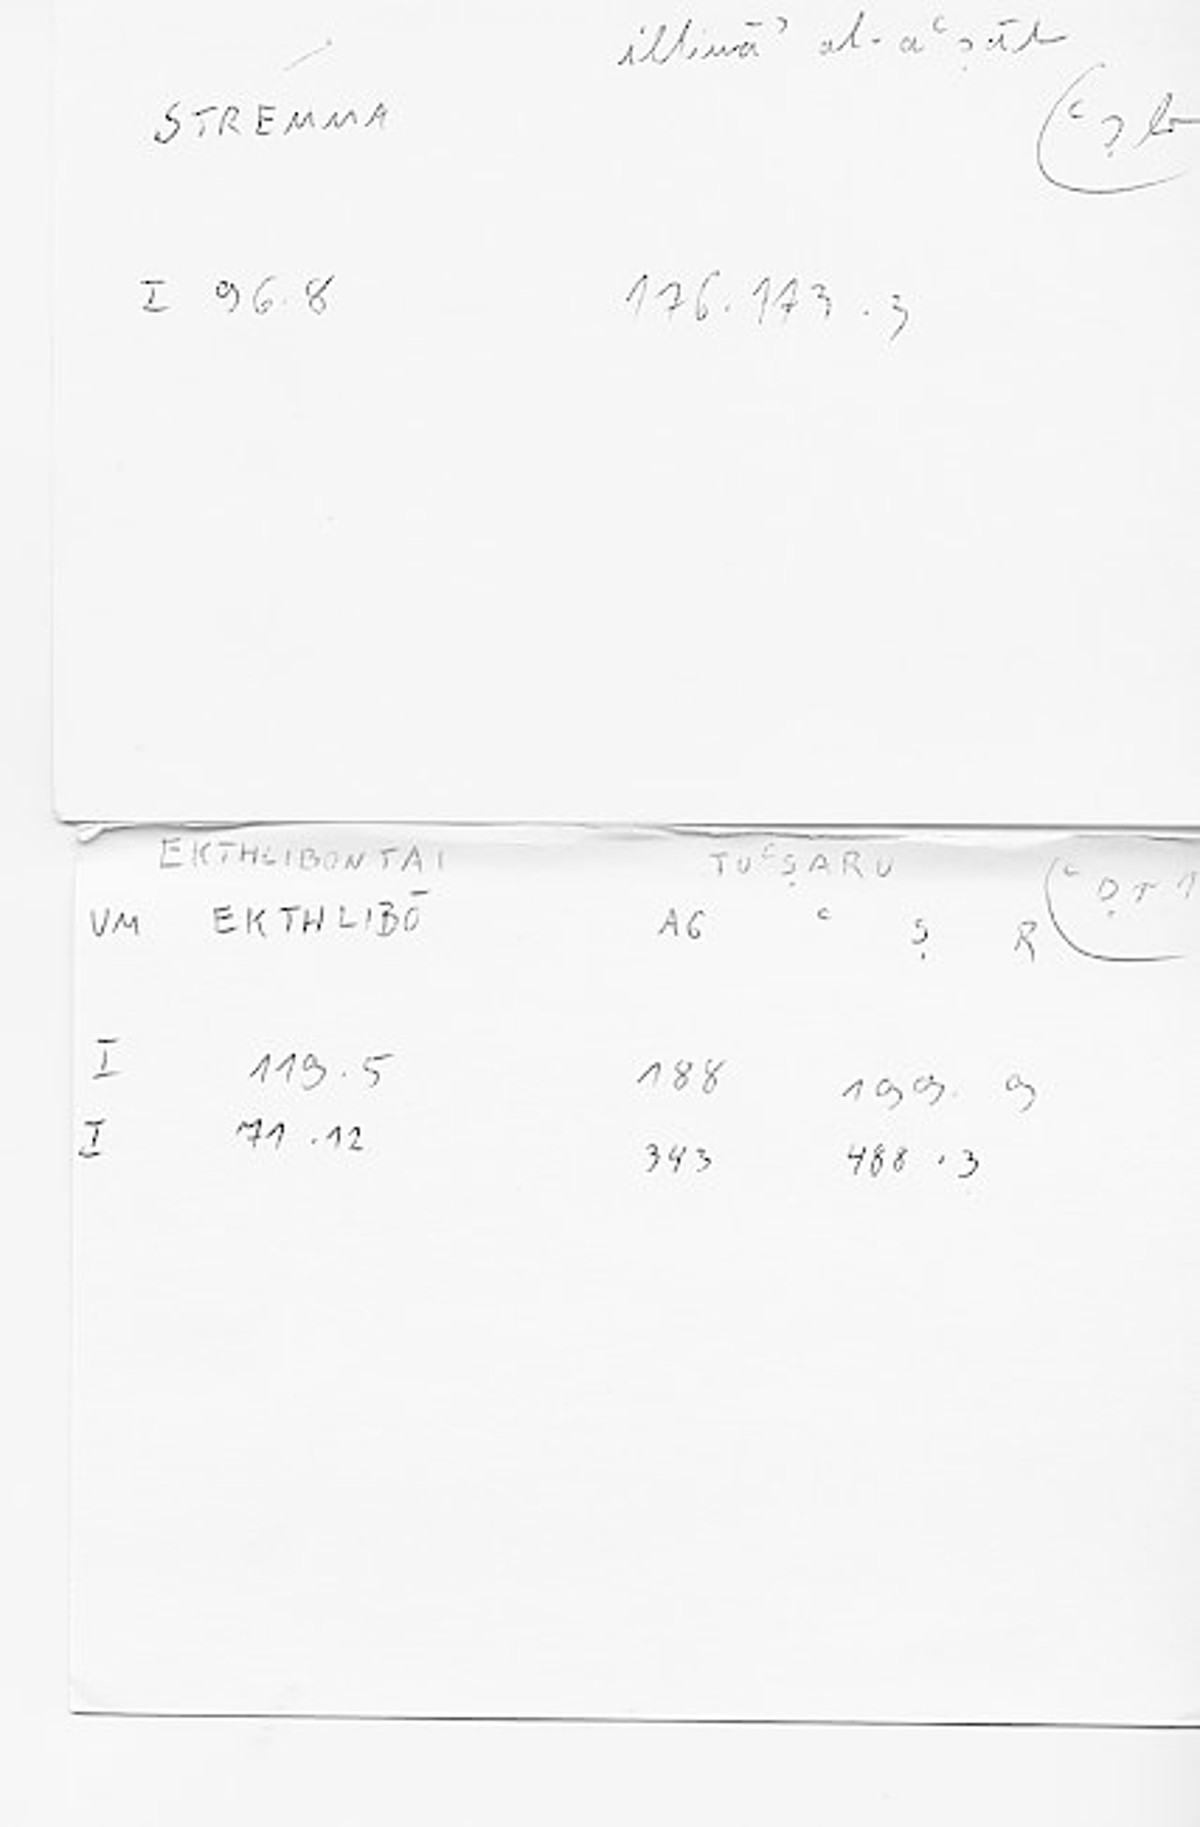 iltiwāʾ al-aʿṣāb
STREMMA
(ʿṣb
I 96.8 176.173.3
EKTHLIBONTAI TUʿṢARU
VM EKTHLIBŌ AG ʿ ṢR
I 119.5 188 199.9
I 71.12 343 488.3